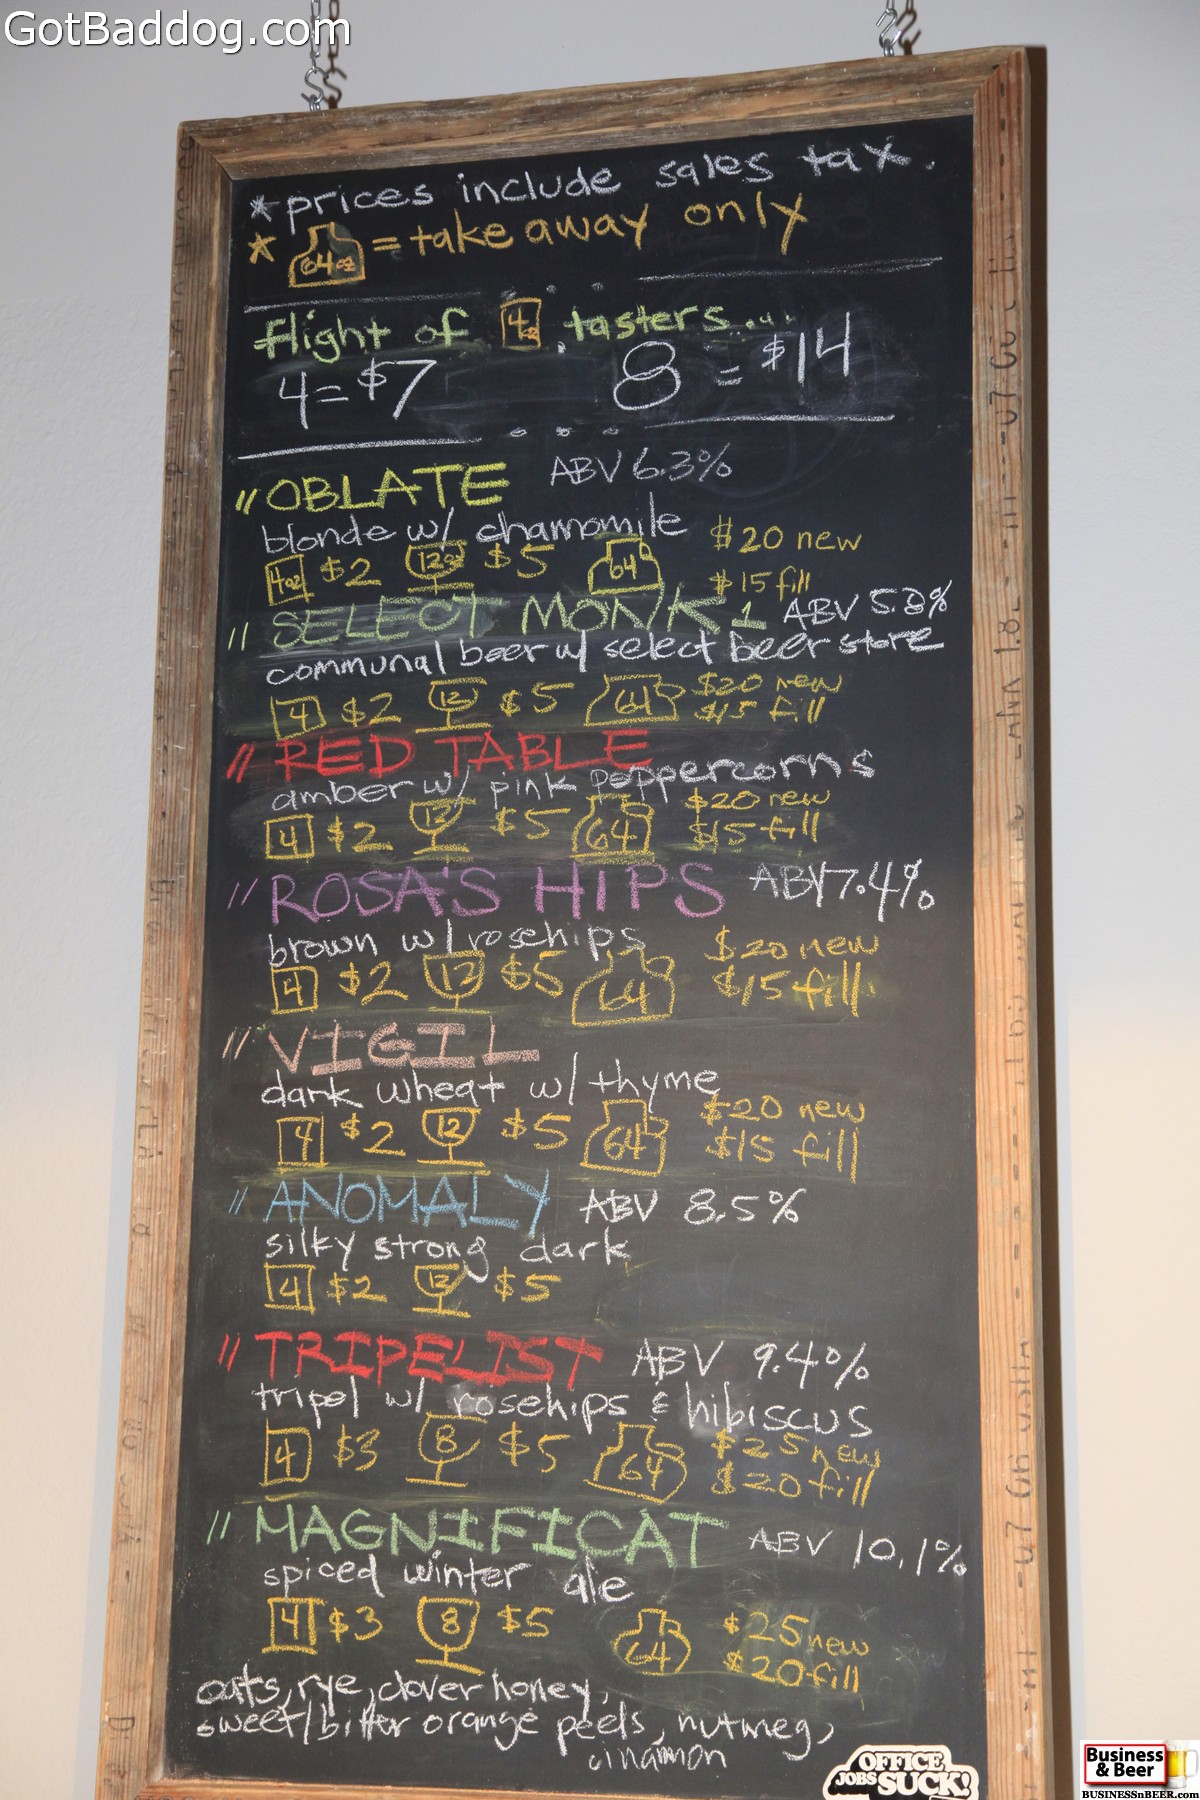 GotBaddog.com
* prices include sales tax.
* 64oz = take away only
flight of 4oz tasters....
4=$7 8 = $14
// OBLATE ABV 6.3%
blonde w/ chamomile
4oz $2 12oz $5 64 $20 new
$15 fill
// SELECT MONK 1 ABV 5.8%
communal beer w/ select beer store
4 $2 12 $5 64 $20 new
$15 fill
// RED TABLE
amber w/ pink peppercorns
4 $2 12 $5 64 $20 new
$15 fill
// ROSA'S HIPS ABV 7.4%
brown w/ rosehips
4 $2 12 $5 64 $20 new
$15 fill
// VIGIL
dark wheat w/ thyme
4 $2 12 $5 64 $20 new
$15 fill
// ANOMALY ABV 8.5%
silky strong dark
4 $2 12 $5
// TRIPELIST ABV 9.4%
tripel w/ rosehips & hibiscus
4 $3 8 $5 64 $25 new
$20 fill
// MAGNIFICAT ABV 10.1%
spiced winter ale
4 $3 8 $5 64 $25 new
$20 fill
oats, rye, clover honey,
sweet/bitter orange peels, nutmeg,
cinamon
OFFICE
JOBS SUCK!
Business
& Beer
BUSINESSnBEER.com